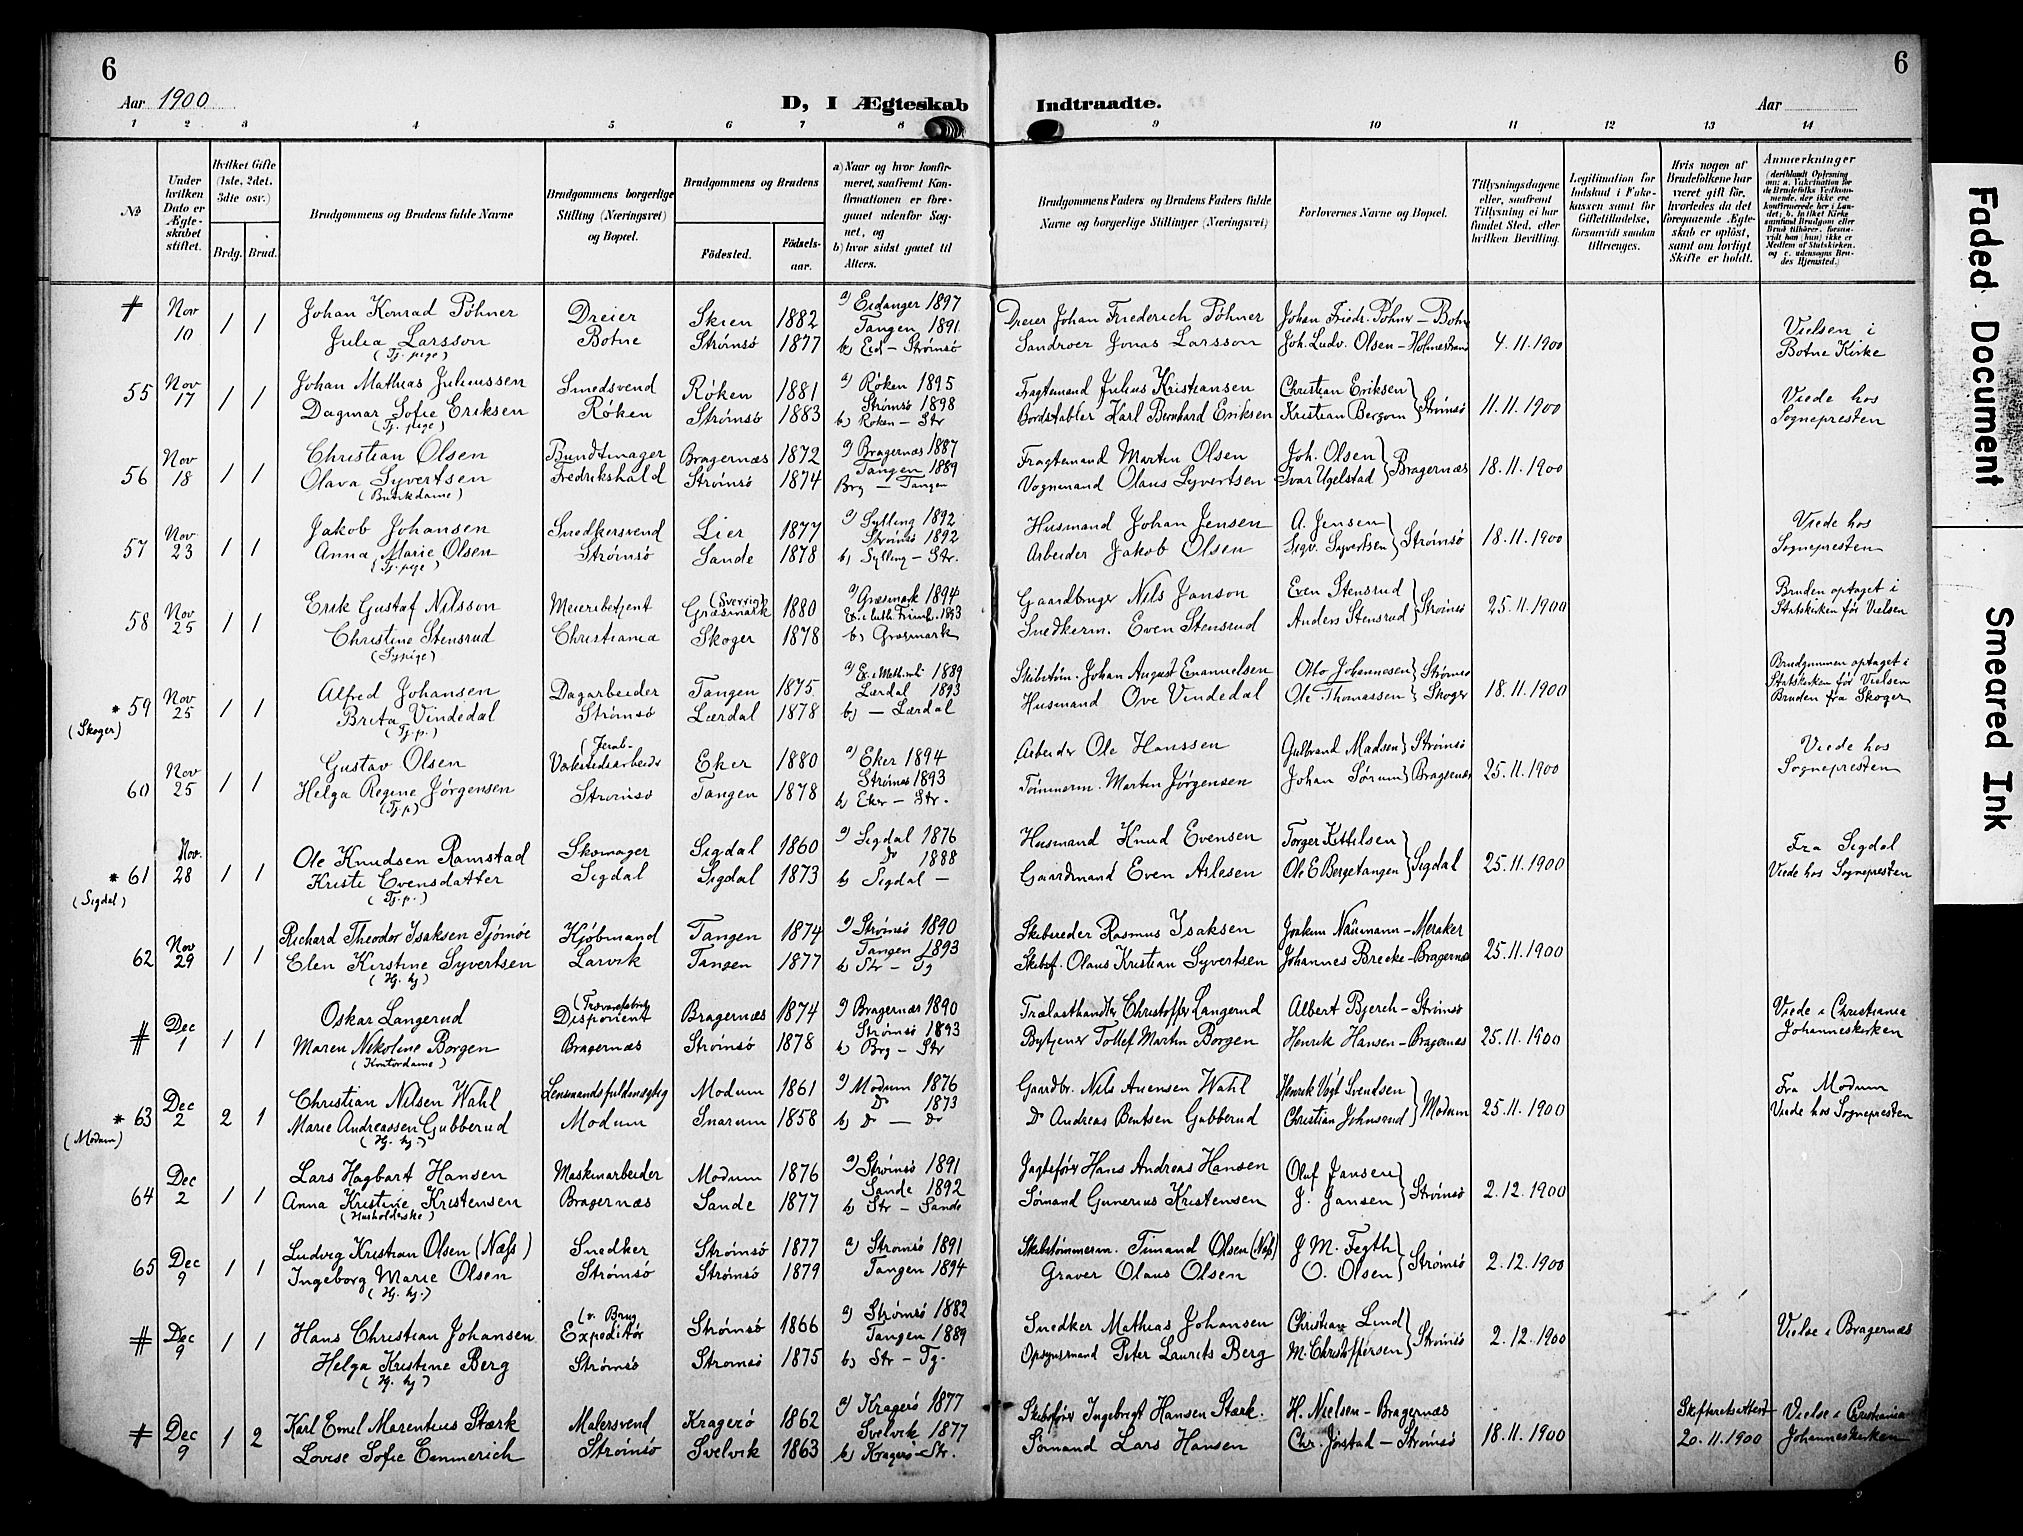 6
6
Aar 1900
D, I Ægteskab Indtraadte.
Aar
1 2 3 4 5 6 7 8 9 10 11 12 13 14
№
Under hvilken Dato er Ægteskabet stiftet.
Hvilket Gifte (1ste, 2det, 3dte osv.)
Brdg. Brud.
Brudgommens og Brudens fulde Navne
Brudgommens borgerlige Stilling (Næringsvei) og Bopæl.
Brudgommens og Brudens
Fødested.
Fødselsaar.
a) Naar og hvor konfirmeret, saafremt Konfirmationen er foregaaet udenfor Sognet, og
b) hvor sidst gaaet til Alters.
Brudgommens Faders og Brudens Faders fulde Navne og borgerlige Stillinger (Næringsvei)
Forlovernes Navne og Bopæl.
Tillysningsdagene eller, saafremt Tillysning ei har fundet Sted, efter hvilken Bevilling.
Legitimation for Indskud i Enkekassen samt for Giftetilladelse, forsaavidt saadan tiltrænges.
Hvis nogen af Brudefolkene har været gift før, hvorledes da det foregaaende Ægteskab er opløst, samt om lovligt Skifte er holdt.
Anmærkninger (deriblandt Oplysning om: a. Vakcination for de Brudefolks Vedkommende, der ikke ere konfirmerede her i Landet; b. hvilket Kirkesamfund Brudgom eller Brud tilhører, forsaavidt han (hun) ikke er Medlem af Statskirken, og c. udensogns Brudes Hjemsted.)
# Nov 10 1 1 Johan Konrad Pöhner Dreier Skien 1882 a) Eidanger 1897 Dreier Johan Friederich Pöhner Johan Friedr. Pöhner – Botne 4.11.1900 Vielsen i
Julia Larsson Botne Strømsö 1877 Tangen 1891 Sandroer Jonas Larsson Joh. Ludv. Olsen – Holmestrand Botne Kirke
(Tj. pige) b) Eid – Strømsö
55 Nov 17 1 1 Johan Mathias Juliussen Smedsvend Røken 1881 a) Røken 1895 Fragtemand Julius Kristiansen Christian Eriksen 11.11.1900 Viede hos
Dagmar Sofie Eriksen Røken Strømsö 1883 Strømsö 1898 Bordstabler Karl Bernhard Eriksen Kristian Bergom Strømsö Sognepresten
(Tj. pige) b) Røken – Str
56 Nov 18 1 1 Christian Olsen Bundtmager Bragernæs 1872 a) Bragernæs 1887 Fragtemand Martin Olsen Joh. Olsen Bragernæs 18.11.1900
Olava Syvertsen Fredrikshald Strømsö 1874 Tangen 1889 Vognmand Olaus Syvertsen Ivar Ugelstad
(Butikdame) Brg – Tangen
57 Nov 23 1 1 Jakob Johansen Snedkersvend Lier 1877 a) Sylling 1892 Husmand Johan Jensen A. Jensen Strømsö 18.11.1900 Viede hos
Anna Marie Olsen Strømsö Sande 1878 Strømsö 1892 Arbeider Jakob Olsen Sigv. Syvertsen Sognepresten
(Tj. pige) b) Sylling – Str.
58 Nov 25 1 1 Erik Gustaf Nilsson Meieribetjent (Sverrig) Græsmark 1880 a) Græsmark 1894 Gaardbruger Nils Janson Even Stensrud Strømsö 25.11.1900 Bruden optaget i
Christine Stensrud Christiania Skoger 1878 1893 Snedkerm. Even Stensrud Anders Stensrud Statskirken før Vielsen
(Sypige) b) Græsmark
* 59 (Skoger) Nov 25 1 1 Alfred Johansen Dagarbeider Tangen 1875 1889 Skibstøm. Johan August Emanuelsen Otto Johannesen Strømsö 18.11.1900 Brudgommen optaget i
Brita Vindedal Strømsö Lærdal 1878 Lærdal 1893 Husmand Ove Vindedal Ole Thomassen Skoger Statskirken før Vielsen
(Tj. p.) b) – Lærdal Bruden fra Skoger
60 Nov 25 1 1 Gustav Olsen (Jernb- Værkstedsarbeider Eker 1880 a) Eker 1894 Arbeider Ole Hanssen Gulbrand Madsen Strømsö 25.11.1900 Viede hos
Helga Regine Jørgensen Strømsö Tangen 1878 Strømsö 1893 Tømmerm. Martin Jørgensen Johan Sørum Bragernæs Sognepresten
(Tj. p) b) Eker – Str.
* 61 (Sigdal) Nov. 28 1 1 Ole Knudsen Ramstad Skomager Sigdal 1860 a) Sigdal 1876 Husmand Knud Evensen Torger Kittilsen Sigdal 25.11.1900 Fra Sigdal
Kristi Evensdatter Sigdal Sigdal 1873 Do 1888 Gaardmand Even Aslesen Ole E Bergetangen Viede hos Sognepresten
(Tj. p.) b) Sigdal –
62 Nov 29 1 1 Richard Theodor Isaksen Tjömöe Kjöbmand Tangen 1874 a) Strømsö 1890 Skibsreder Rasmus Isaksen Joakim Näumann – Meraker 25.11.1900
Elen Kirstine Syvertsen Larvik Tangen 1877 Tangen 1893 Skibsf. Olaus Kristian Syvertsen Johannes Brecke – Bragernæs
(Hj. hj) b) Str – Tg
# Dec 1 1 1 Oskar Langerud Disponent Bragernæs 1874 a) Bragernæs 1890 Trælasthandler Christoffer Langerud Albert Bjerch – Strømsö 25.11.1900 Viede i Christiania
Maren Nikoline Borgen Bragernæs Strømsö 1878 Strømsö 1893 Bytjener Tollef Martin Borgen Henrik Hansen – Bragernæs Johanneskirken
(Kontordame) b) Brg – Str
* 63 (Modum) Dec 2 2 1 Christian Nilsen Wahl Lensmandsfuldmægtig Modum 1861 a) Modum 1876 Gaardbr. Nils Anensen Wahl Henrik Vögt Svendsen Modum 25.11.1900 Fra Modum
Marie Andreassen Gubberud Modum Snarum 1858 Do 1873 Do Andreas Bentsen Gubberud Christian Johnsrud Viede hos Sognepresten
(Hj. hj.) b) Do – Do
64 Dec 2 1 1 Lars Hagbart Hansen Maskinarbeider Modum 1876 a) Strømsö 1891 Jagtefører Hans Andreas Hansen Oluf Jansen Strømsö 2.12.1900
Anna Kristine Kristensen Bragernæs Sande 1877 Sande 1892 Sømand Gunerius Kristensen J. Jansen
(Husholderske) b) Str – Sande
65 Dec 9 1 1 Ludvig Kristian Olsen (Næss) Snedker Strømsö 1877 a) Strømsö 1891 Skibstømmerm. Timand Olsen (Næss) J. M. Fegth Strømsö 2.12.1900
Ingeborg Marie Olsen Strømsö Strømsö 1879 Tangen 1894 Graver Olaus Olsen O. Olsen
(Hj. hj.)
# Dec 9 1 1 Hans Christian Johansen (v. Brug Expeditör Strømsö 1866 a) Strømsö 1882 Snedker Mathias Johansen Christian Lind Strømsö 2.12.1900 Vielse i Bragernæs
Helga Kristine Berg Strømsö Strømsö 1875 Tangen 1889 Opsynsmand Peter Laurits Berg M. Christoffersen
(Hj. hj) b) Str – Tg.
# Dec 9 1 2 Karl Emil Marentius Stærk Malersvend Kragerö 1862 a) Kragerö 1877 Skibsfører Ingebrigt Hansen Stærk. H. Nielsen – Bragernæs 18.11.1900 Skifteretsattest Vielse i Christiania
Lovise Sofie Emmerich Strømsö Svelvik 1863 Svelvik 1877 Sømand Lars Hansen Chr. Jostad – Strømsö 20.11.1900 Johanneskirken
b) Kragerö – Str.
Faded Document
Smeared Ink